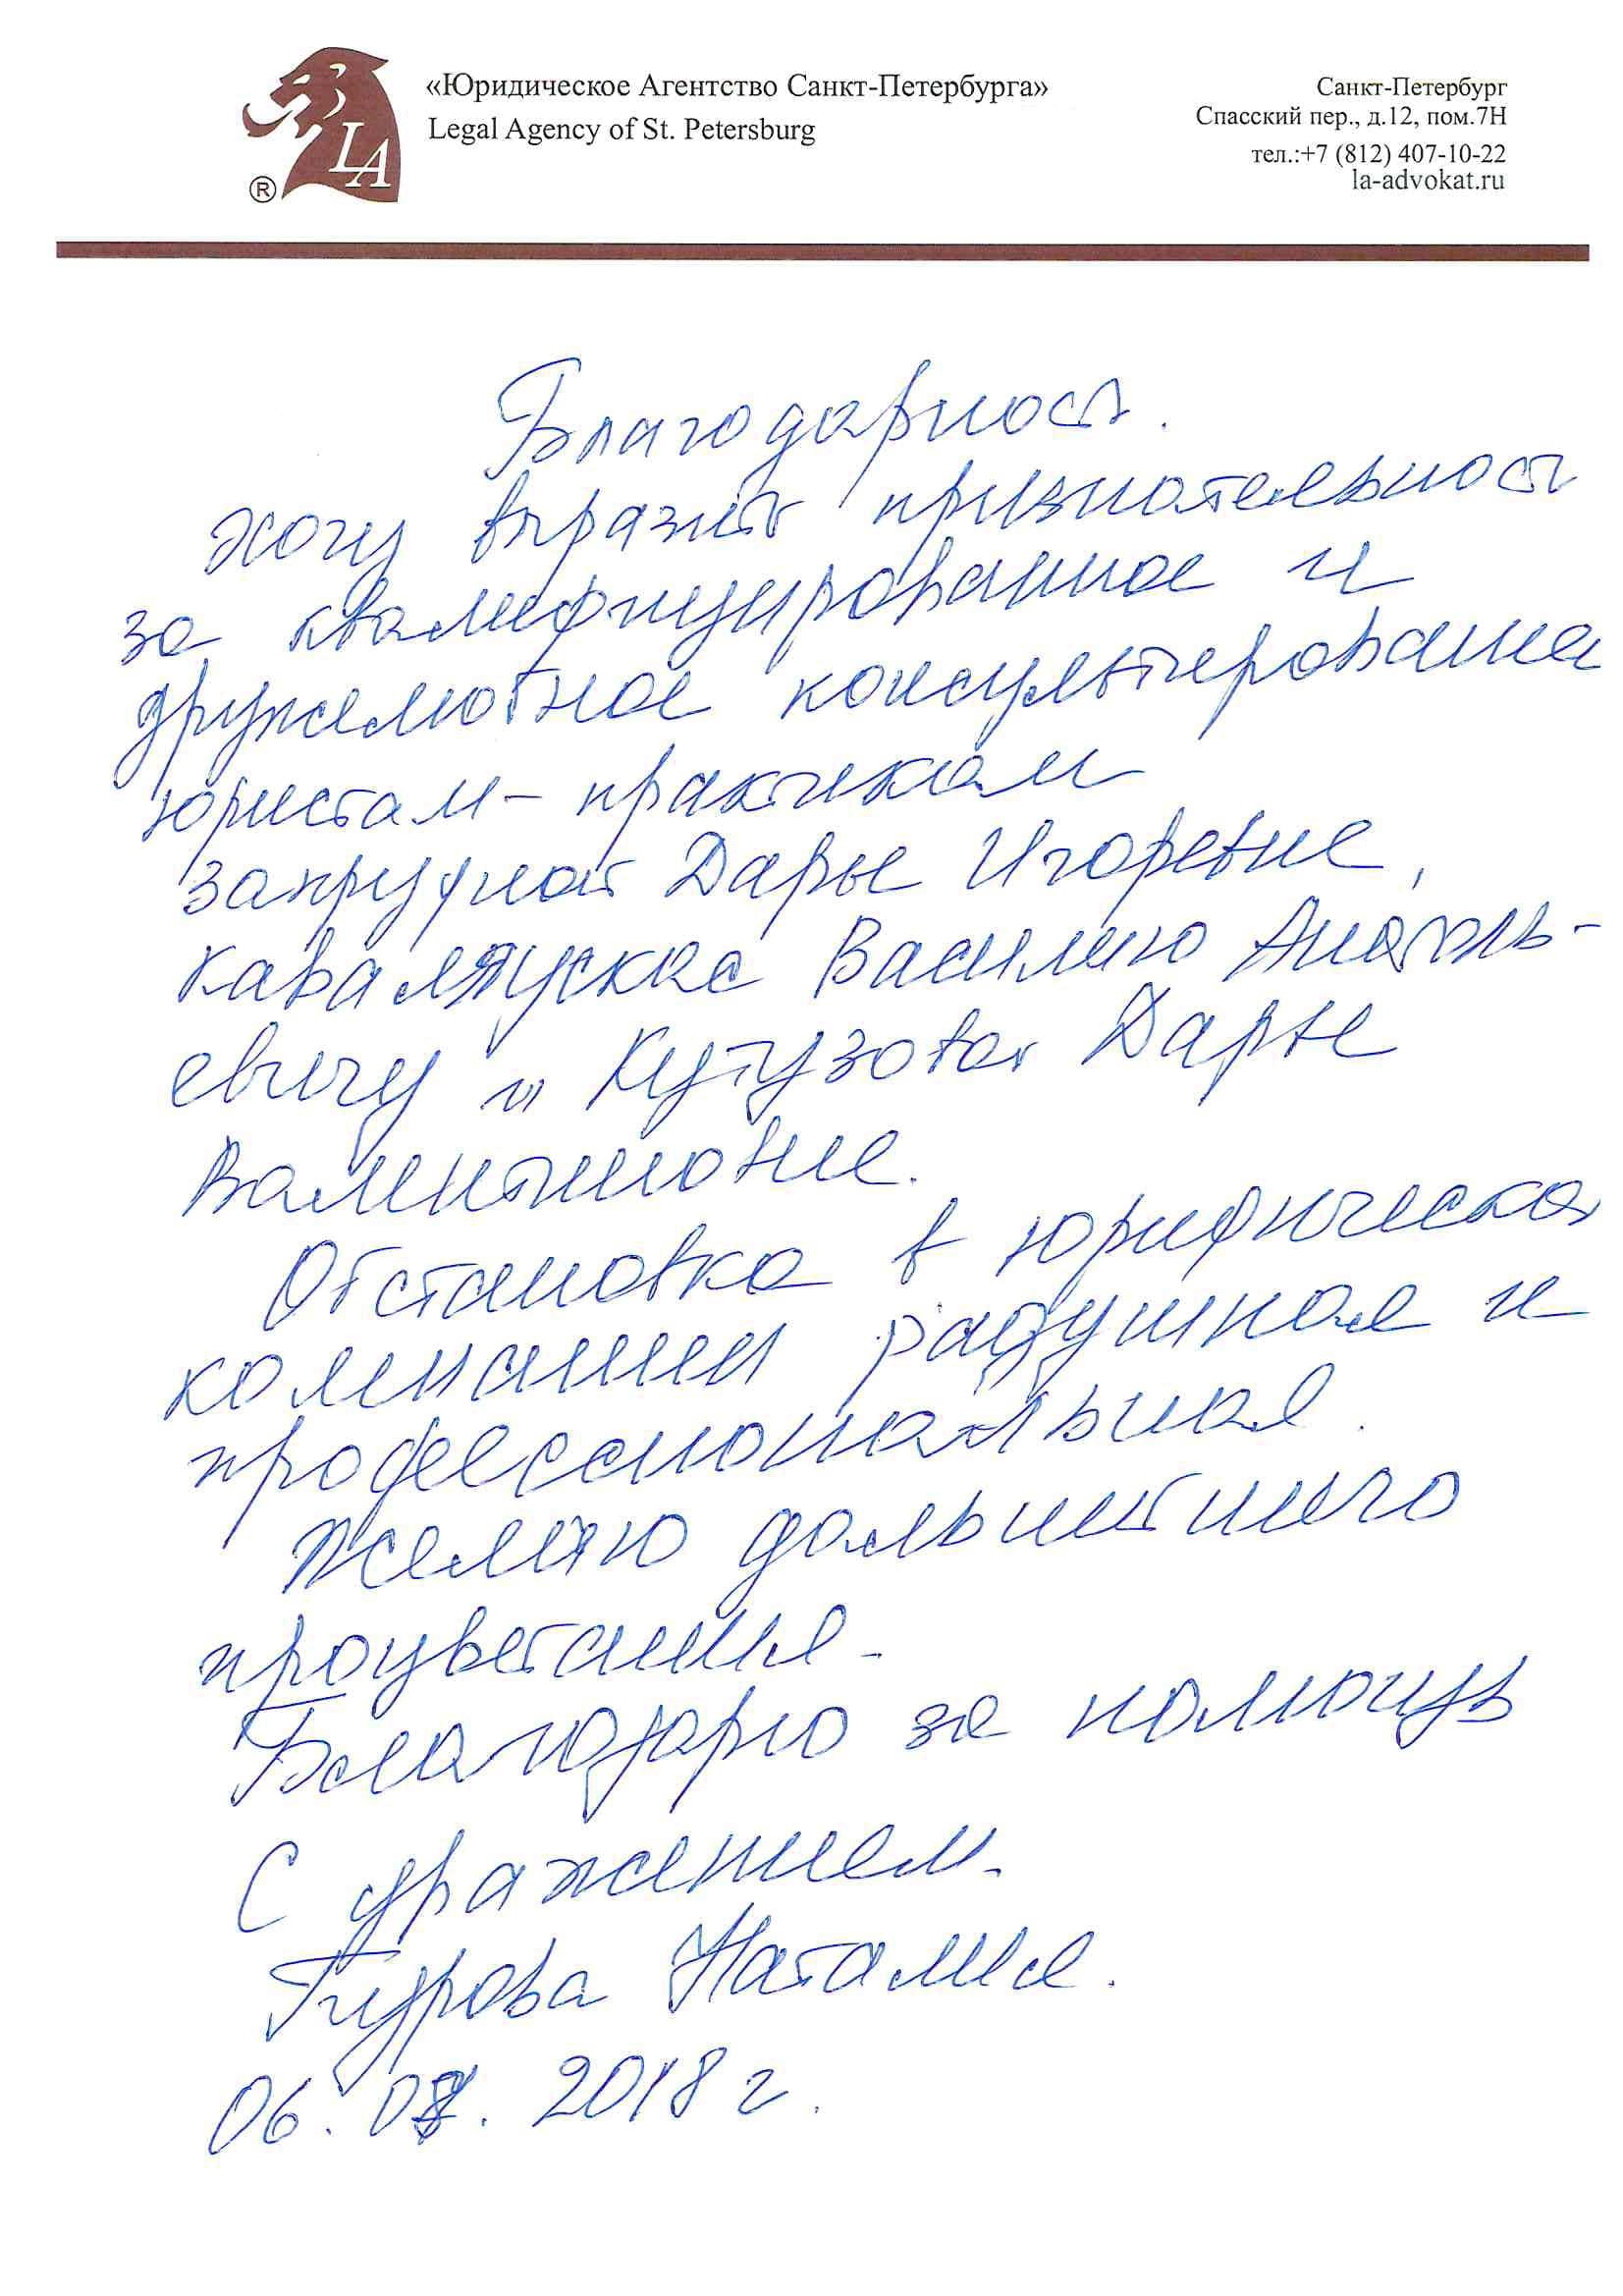 «Юридическое Агентство Санкт-Петербурга»
Legal Agency of St. Petersburg
Санкт-Петербург
Спасский пер., д.12, пом.7Н
тел.:+7 (812) 407-10-22
la-advokat.ru
LA
®
Благодарность.
Хочу выразить признательность
за квалифицированное и
дружелюбное консультирование
юристам - практикам
Запрудной Дарье Игоревне,
Василию Анатоль-
евичу и Кутузовой Дарье
Валентиновне.
Обстановка в юридической
компании радушная и
профессиональная.
Желаю дальнейшего
процветания.
Благодарю за помощь
С уважением.
Гурова Наталия.
06. 2018 г.